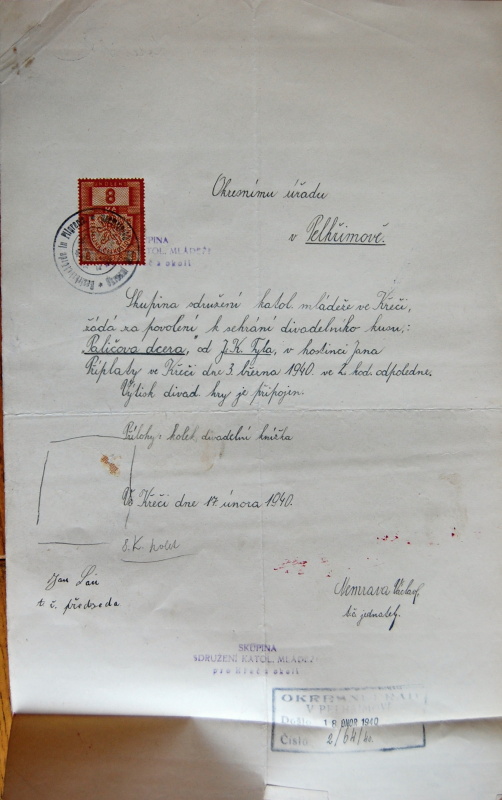 Okresnímu úřadu
v Pelhřimově.
8
SKUPINA
KATOL. MLÁDEŽE
Skupina sdružení katol. mládeže ve Křeči,
žádá za povolení k sehrání divadelního kusu:
"Paličova dcera" od J. K. Tyla, v hostinci Jana
Příplaty ve Křeči dne 3. března 1940. ve 2. hod. odpoledne.
Výtisk divad. hry je připojen.
Přílohy: kolek, divadelní knížka
Ve Křeči dne 17 února 1940.
8.K. kolek
Jan
t. č. předseda
Nemrava Václav
t.č. jednatel.
SKUPINA
SDRUŽENÍ KATOL. MLÁDEŽE
pro Křeč a okolí
OKRESNÍ ÚŘAD
V PELHŘIMOVĚ
Došlo 18. ÚNOR 1940
Číslo